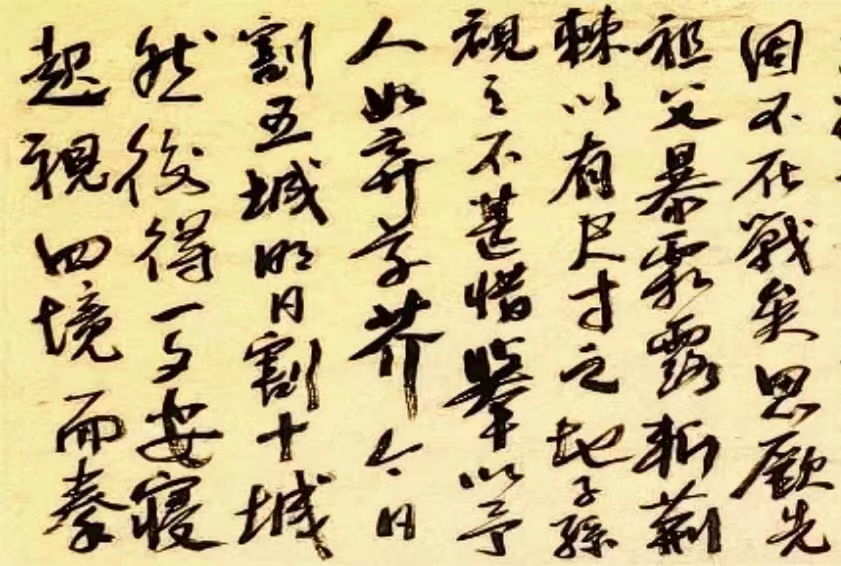 固不在戰矣思厥先
祖父暴霜露斬荊
棘以有尺寸之地子孫
視之不甚惜舉以予
人如棄草芥今日
割五城明日割十城
然後得一夕安寢
起視四境而秦